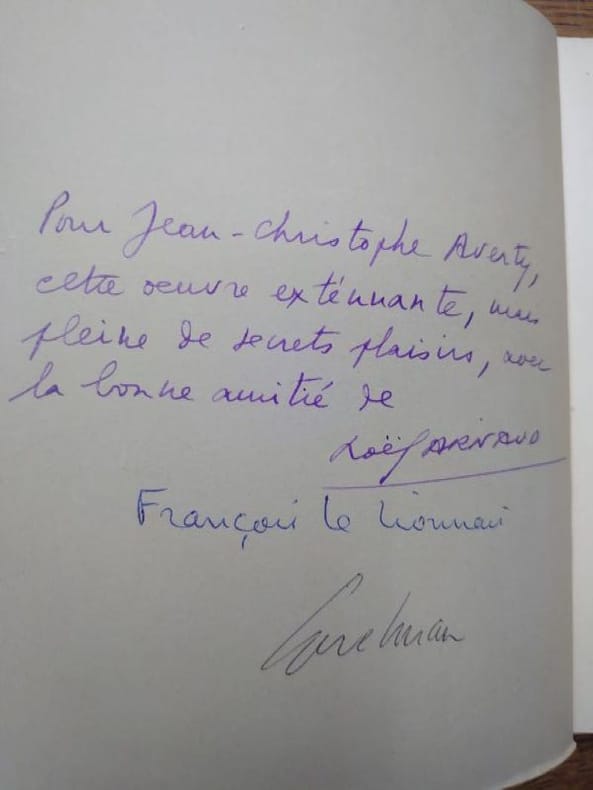 Pour Jean-Christophe Averty,
cette oeuvre exténuante, mais
pleine de secrets plaisirs, avec
la bonne amitié de
Noël ARNAUD
François le Lionnais
Carelman